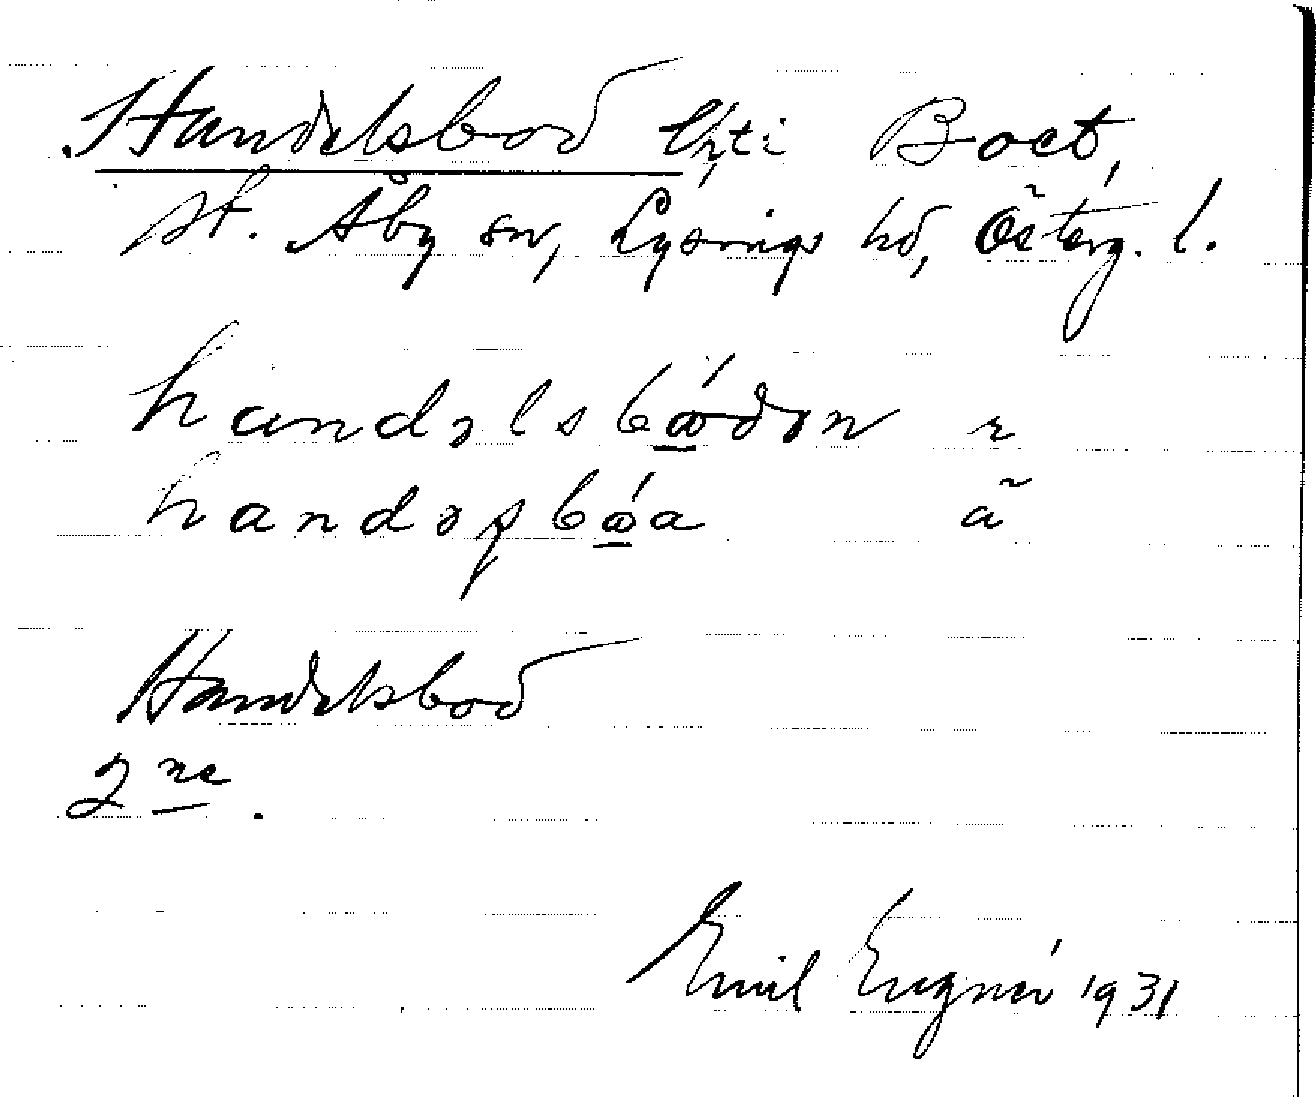 Handelsbod lht i Boet,
St. Åby sn, Lysings hd, Österg. l.
handəlsbώ̲dən
handəsbώ̲a ã
Handelsbod
2 ne.
Emil Eugnér 1931